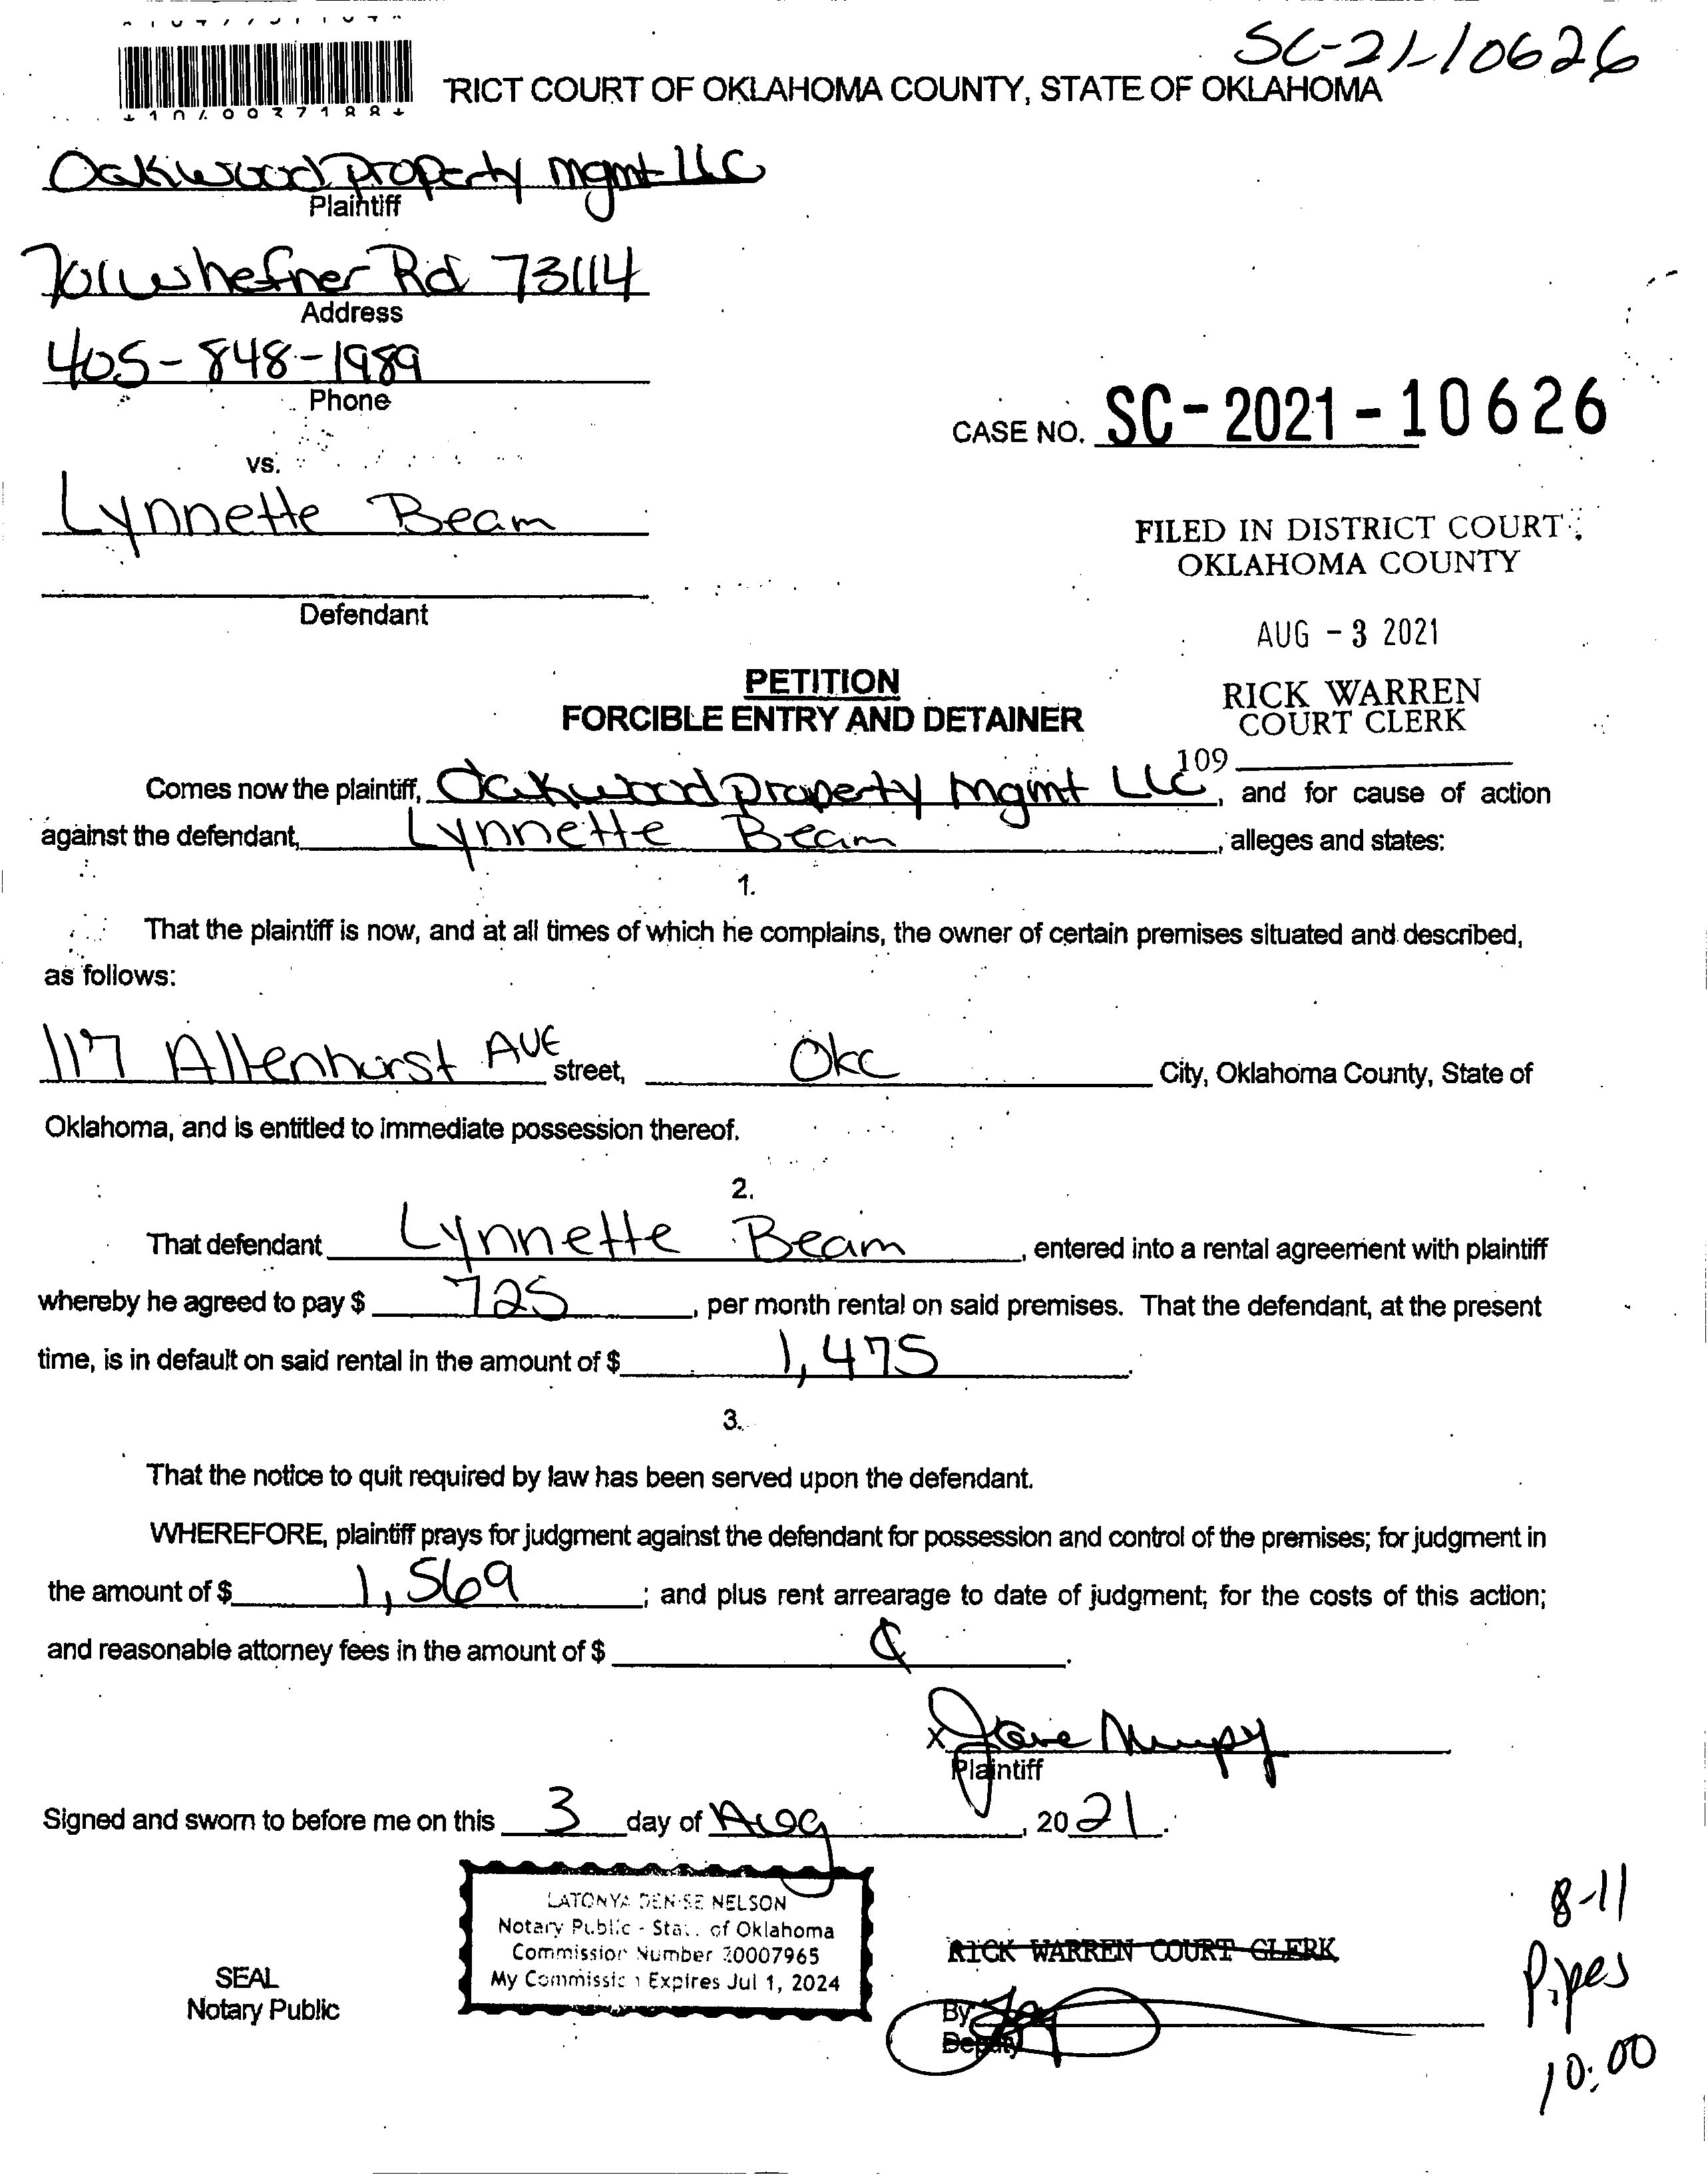 SC-21-10626
RICT COURT OF OKLAHOMA COUNTY, STATE OF OKLAHOMA
Oakwood Property Mgmt LLC
Plaintiff
701 W hefner Rd 73114
Address
405-848-1989
Phone
CASE NO. SC-2021-10626
vs.
Lynnette Beam
FILED IN DISTRICT COURT
OKLAHOMA COUNTY
Defendant
AUG - 3 2021
PETITION
FORCIBLE ENTRY AND DETAINER
RICK WARREN
COURT CLERK
109
Comes now the plaintiff, Oakwood Property Mgmt LLC, and for cause of action
against the defendant, Lynnette Beam, alleges and states:
1.
That the plaintiff is now, and at all times of which he complains, the owner of certain premises situated and described,
as follows:
117 Allenhurst AVE street, Okc City, Oklahoma County, State of
Oklahoma, and is entitled to immediate possession thereof.
2.
That defendant Lynnette Beam, entered into a rental agreement with plaintiff
whereby he agreed to pay $ 725, per month rental on said premises. That the defendant, at the present
time, is in default on said rental in the amount of $ 1,475.
3.
That the notice to quit required by law has been served upon the defendant.
WHEREFORE, plaintiff prays for judgment against the defendant for possession and control of the premises; for judgment in
the amount of $ 1,569; and plus rent arrearage to date of judgment; for the costs of this action;
and reasonable attorney fees in the amount of $
x
Plaintiff
Signed and sworn to before me on this 3 day of Aug, 2021.
LATONYA DENISE NELSON
Notary Public - State of Oklahoma
Commission Number 20007965
My Commission Expires Jul 1, 2024
SEAL
Notary Public
RICK WARREN COURT CLERK
By
Deputy
8-11
Pipes
10:00